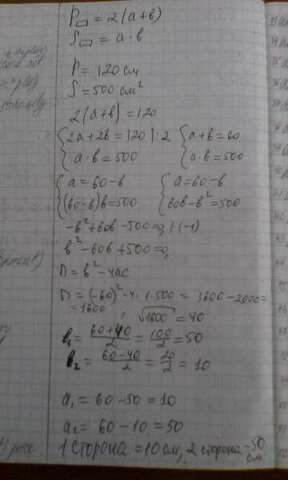 P▭ = 2(a+b)
S▭ = a · b
P = 120 см
S = 500 см²
2(a+b) = 120
{2a+2b = 120 | :2 {a+b = 60
{a · b = 500 {a · b = 500
{a = 60-b {a = 60-b
{(60-b)b = 500 {60b-b² = 500
-b²+60b-500=0 | (-1)
b²-60b+500=0
D = b²-4ac
D = (-60)²-4·1·500 = 3600-2000=
=1600 ; √1600 = 40
b₁ = 60+40/2 = 100/2 = 50
b₂ = 60-40/2 = 20/2 = 10
a₁ = 60-50 = 10
a₂ = 60-10 = 50
1 сторона = 10 см, 2 сторона - 50 см